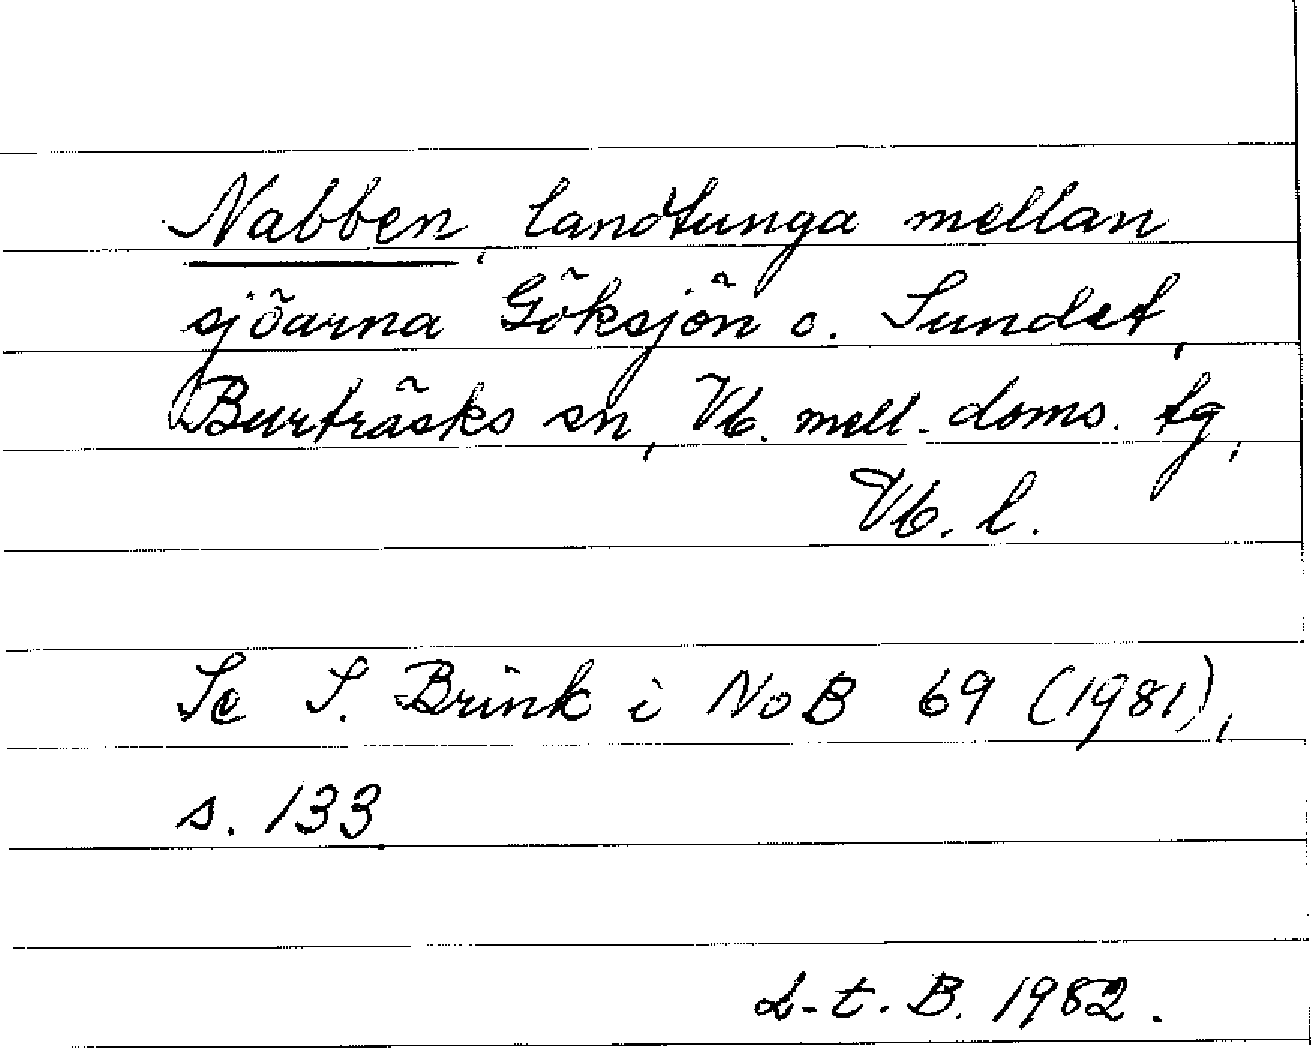 Nabben, landtunga mellan
sjöarna Göksjön o. Sundet,
Burträsks sn, Vb. mell. doms. tg,
Vb. l.
Se S. Brink i NoB 69 (1981),
s. 133.
L-t. B. 1982.